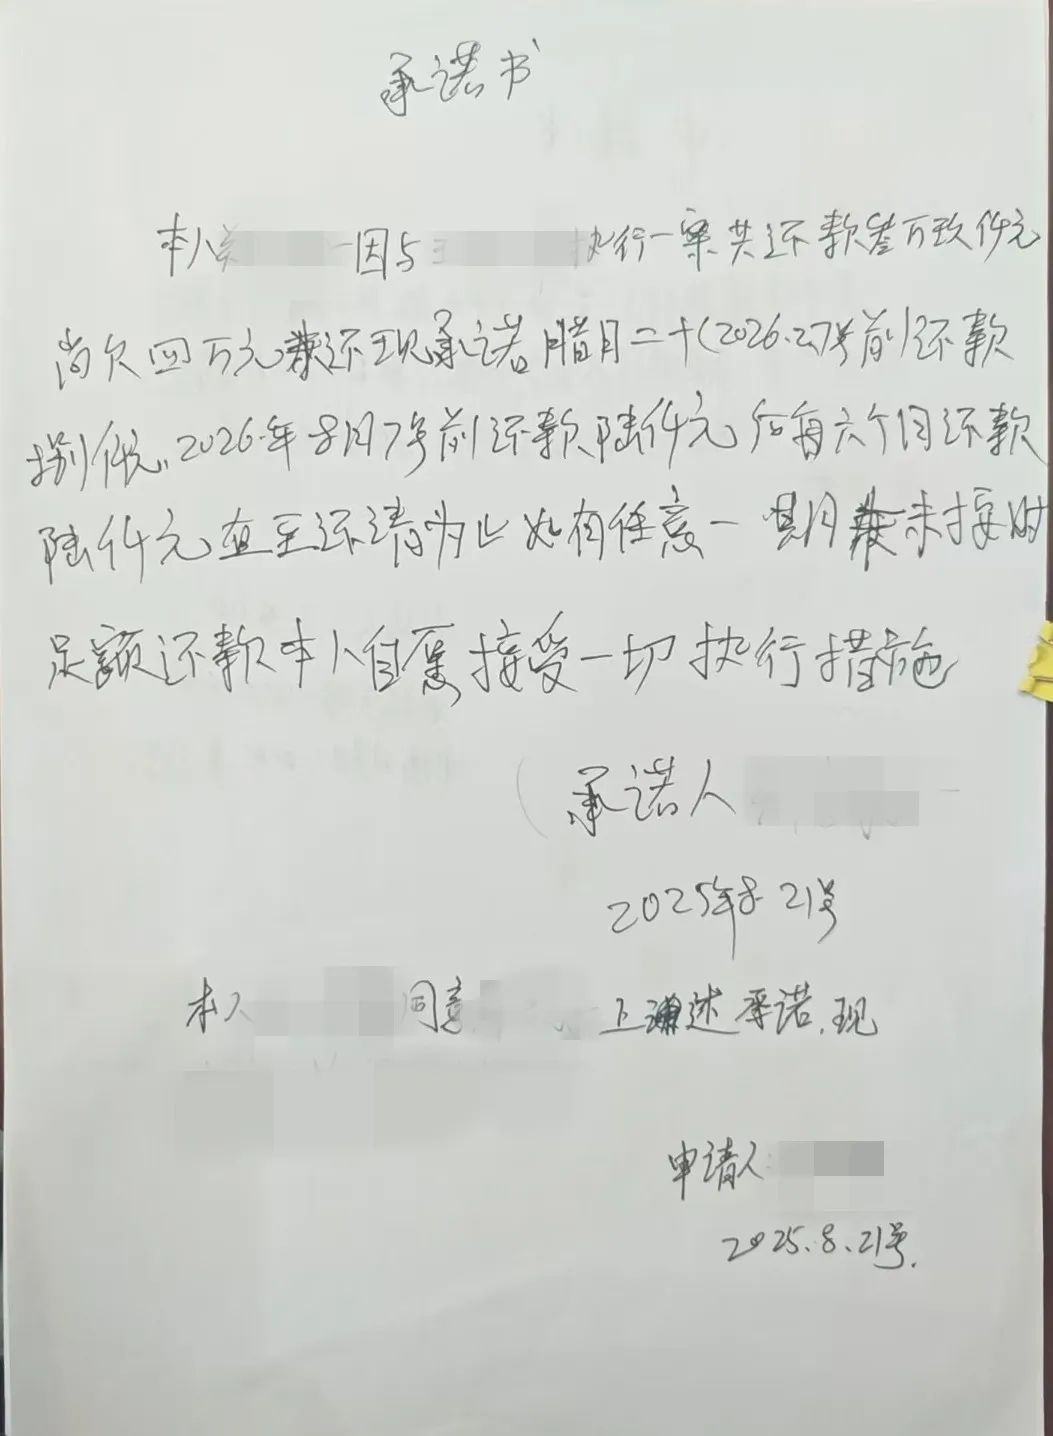 承诺书
本人 因与 执行一案共还款叁万玖仟元
尚欠四万元未还现承诺腊月二十(2026.2.7号前)还款
捌仟元,2026年8月7号前还款陆仟元后每六个月还款
陆仟元直至还清为止如有任意一期月未按时
足额还款本人自愿接受一切执行措施
承诺人
2025年8.21号
本人 同意 上述承诺,现
申请人:
2025.8.21号.